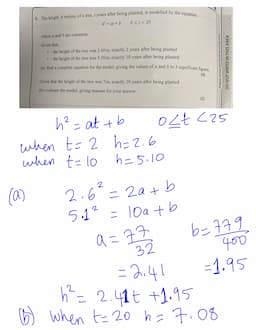 The height, h metres, of a tree, t years after being planted, is modelled by the equation
h² = at + b 0 ≤ t < 25
where a and b are constants.
Given that
• the height of the tree was 2.60m, exactly 2 years after being planted
• the height of the tree was 5.10m, exactly 10 years after being planted
find a complete equation for the model, giving the values of a and b to 3 significant figures.
Given that the height of the tree was 7m, exactly 20 years after being planted
evaluate the model, giving reasons for your answer.
h² = at + b 0≤t<25
when t = 2 h = 2.6
when t = 10 h = 5.10
(a) 2.6² = 2a + b
5.1² = 10a + b
a = 77/32 b = 779/400
= 2.41 = 1.95
h² = 2.41t + 1.95
(b) when t = 20 h = 7.08